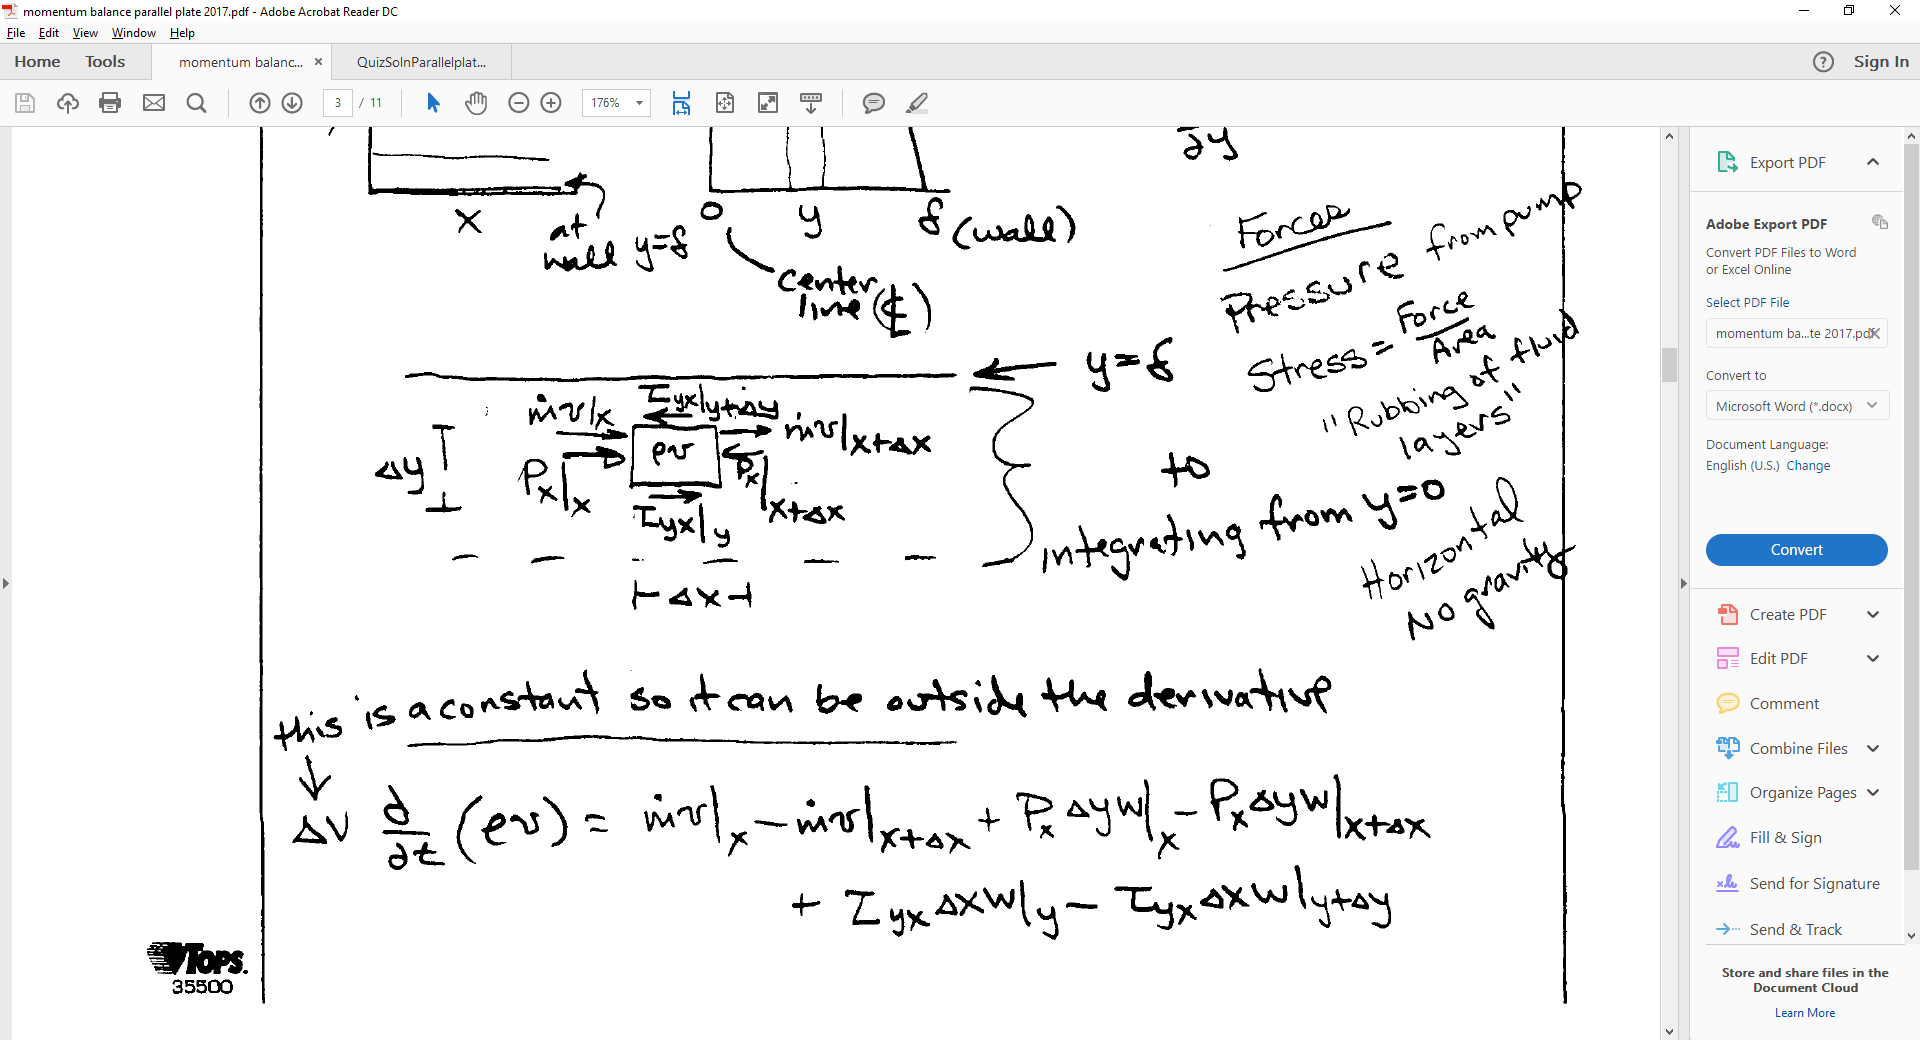 momentum balance parallel plate 2017.pdf - Adobe Acrobat Reader DC
File Edit View Window Help
Home Tools momentum balanc... × QuizSolnParallelplat... Sign In
3 / 11 176%
∂y
x
at
wall y=δ
0 y δ (wall)
center
line (℄)
Forces
Pressure from pump
Stress = Force
Area
"Rubbing of fluid
layers"
y=δ
to
integrating from y=0
Horizontal
No gravity
τyx|y+Δy
ṁv|x
ρv
ṁv|x+Δx
Δy
Px|x
Px|x+Δx
τyx|y
⊢Δx⊣
this is a constant so it can be outside the derivative
ΔV ∂/∂t (ρv) = ṁv|x − ṁv|x+Δx + PxΔyW|x − PxΔyW|x+Δx
+ τyxΔxW|y − τyxΔxW|y+Δy
TOPS.
35500
Export PDF
Adobe Export PDF
Convert PDF Files to Word
or Excel Online
Select PDF File
momentum ba...te 2017.pdf
Convert to
Microsoft Word (*.docx)
Document Language:
English (U.S.) Change
Convert
Create PDF
Edit PDF
Comment
Combine Files
Organize Pages
Fill & Sign
Send for Signature
Send & Track
Store and share files in the
Document Cloud
Learn More